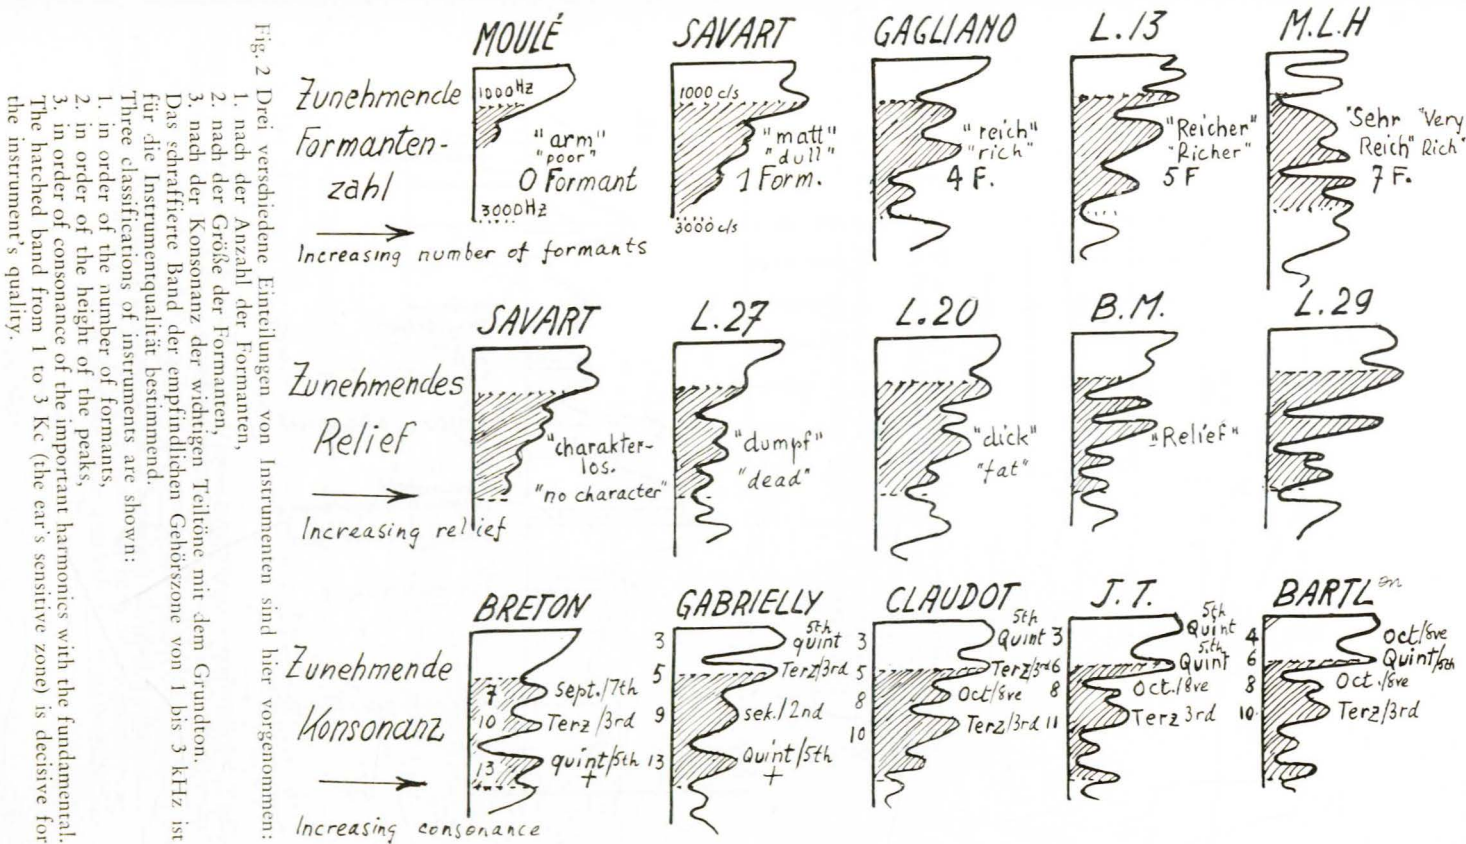 Fig. 2 Drei verschiedene Einteilungen von Instrumenten sind hier vorgenommen:
1. nach der Anzahl der Formanten,
2. nach der Größe der Formanten,
3. nach der Konsonanz der wichtigen Teiltöne mit dem Grundton.
Das schraffierte Band der empfindlichen Gehörszone von 1 bis 3 kHz ist
für die Instrumentqualität bestimmend.
Three classifications of instruments are shown:
1. in order of the number of formants,
2. in order of the height of the peaks,
3. in order of consonance of the important harmonics with the fundamental.
The hatched band from 1 to 3 Kc (the ear's sensitive zone) is decisive for
the instrument's quality.
Zunehmende
Formanten-
zahl
Increasing number of formants
MOULÉ
1000Hz
"arm"
"poor"
0 Formant
3000Hz
SAVART
1000 c/s
"matt"
"dull"
1 Form.
3000 c/s
GAGLIANO
"reich"
"rich"
4 F.
L.13
"Reicher"
"Richer"
5 F
M.L.H
"Sehr "Very
Reich" Rich"
7 F.
Zunehmendes
Relief
Increasing relief
SAVART
"charakter-
los.
"no character"
L.27
"dumpf"
"dead"
L.20
"dick"
"fat"
B.M.
"Relief"
L.29
Zunehmende
Konsonanz
Increasing consonance
BRETON
7 sept./7th
10 Terz/3rd
13 quint/5th
+
GABRIELLY
5th
3 quint
5 Terz/3rd
9 sek./2nd
13 Quint/5th
+
CLAUDOT
5th
3 Quint
5 Terz/3rd
8 Oct/8ve
10 Terz/3rd
J.T.
5th
3 Quint
5th
6 Quint
8 Oct./8ve
11 Terz 3rd
BARTL
4 Oct/8ve
6 Quint/5th
8 Oct./8ve
10. Terz/3rd